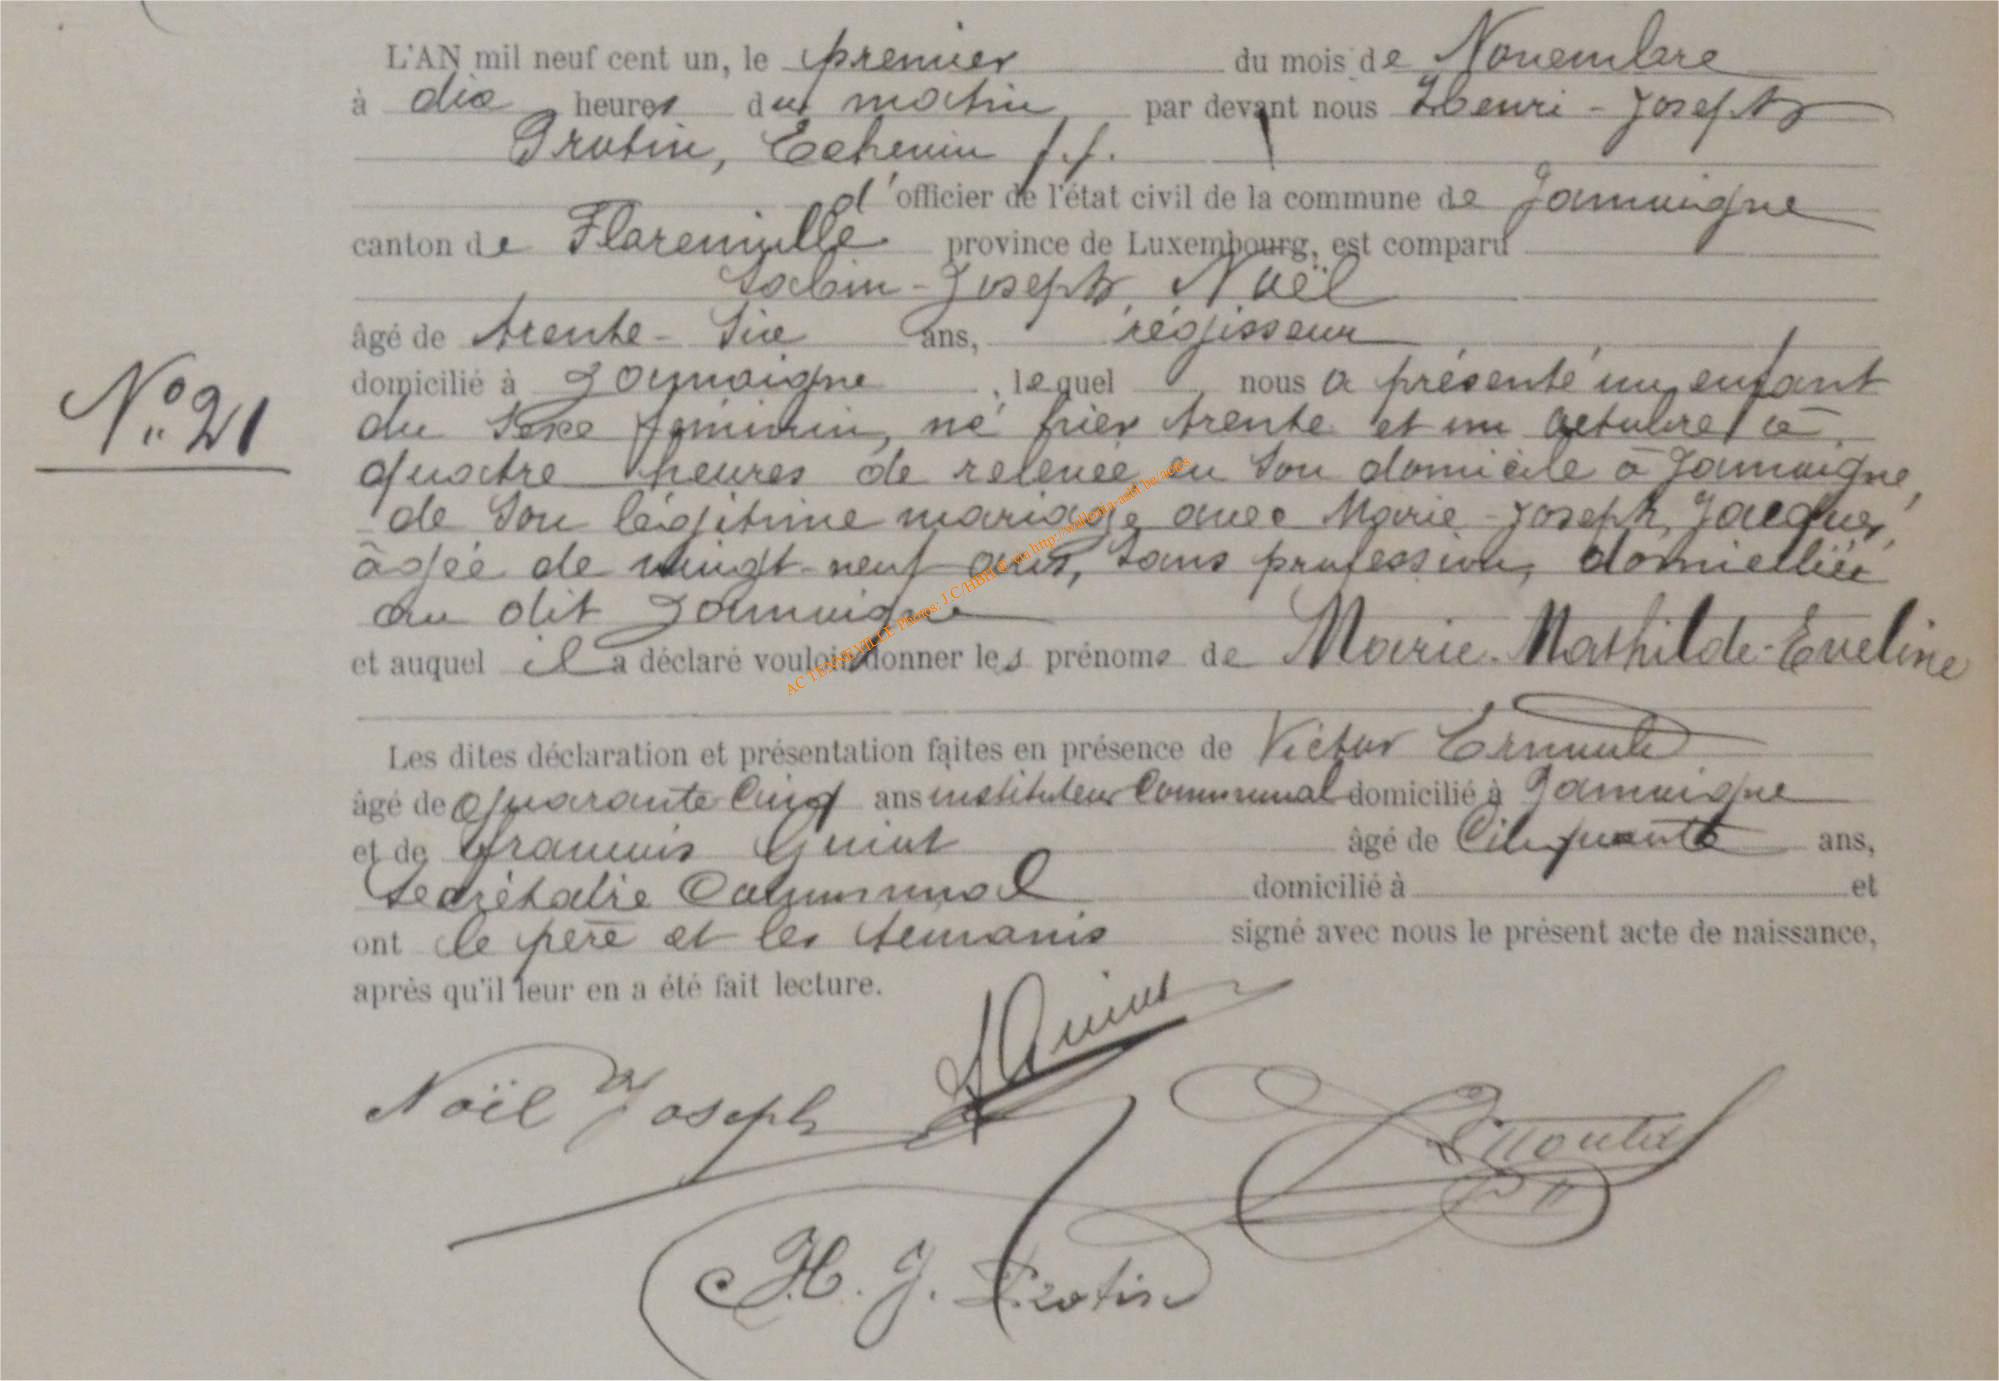 L'AN mil neuf cent un, le premier du mois de Novembre
à dix heures du matin par devant nous Henri - Joseph
Protin, Echevin f.f.
d'officier de l'état civil de la commune de Jamoigne
canton de Florenville province de Luxembourg, est comparu
Sabin - Joseph Noël
âgé de trente - six ans, régisseur
domicilié à Jamoigne, lequel nous a présenté un enfant
N° 21
du sexe féminin, né hier trente et un octobre à
quatre heures de relevée en son domicile à Jamoigne,
de son légitime mariage avec Marie - Joseph Jacques,
âgée de vingt-neuf ans, sans profession, domiciliée
au dit Jamoigne
et auquel il a déclaré vouloir donner les prénoms de Marie-Mathilde-Eveline
AC TENNEVILLE Photos. J.C/HBH & via http://wallonia-asbl.be/actes
Les dites déclaration et présentation faites en présence de Victor
âgé de quarante cinq ans instituteur communal domicilié à Jamoigne
et de François Guiot âgé de Cinquante ans,
secrétaire Communal domicilié à et
ont le père et les témoins signé avec nous le présent acte de naissance,
après qu'il leur en a été fait lecture.
Guiot
Noël Joseph
H. J. Protin